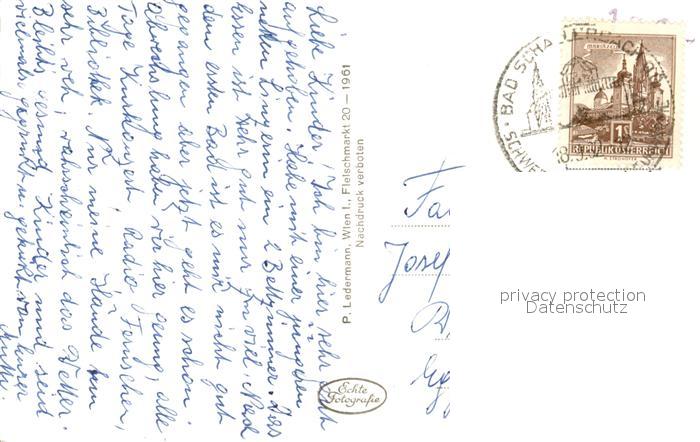 Liebe Kinder! Ich bin hier sehr gut
aufgehoben. Habe mit einer jüngeren
netten Linzerin ein 2 Bettzimmer. Das
Essen ist sehr gut nur zu viel. Nach
dem ersten Bad ist es mir nicht gut
gegangen aber jetzt geht es schon.
Abwechslung haben wir hier genug, alle
Tage Kurkonzert Radio Fernseher,
Bibliothek. Nur meine Hände tun
sehr weh, wahrscheinlich das Wetter.
Bleibts gesund Kinder und seid
vielmals gegrüßt u. geküßt von Eurer
Mutter.
P. Ledermann, Wien I., Fleischmarkt 20 — 1961
Nachdruck verboten
Echte
Fotografie
BAD SCHALLERBACH
SCHWEF
18.
MARIAZELL
1S
REPUBLIK ÖSTERREICH
Fa
Josef
privacy protection
Datenschutz